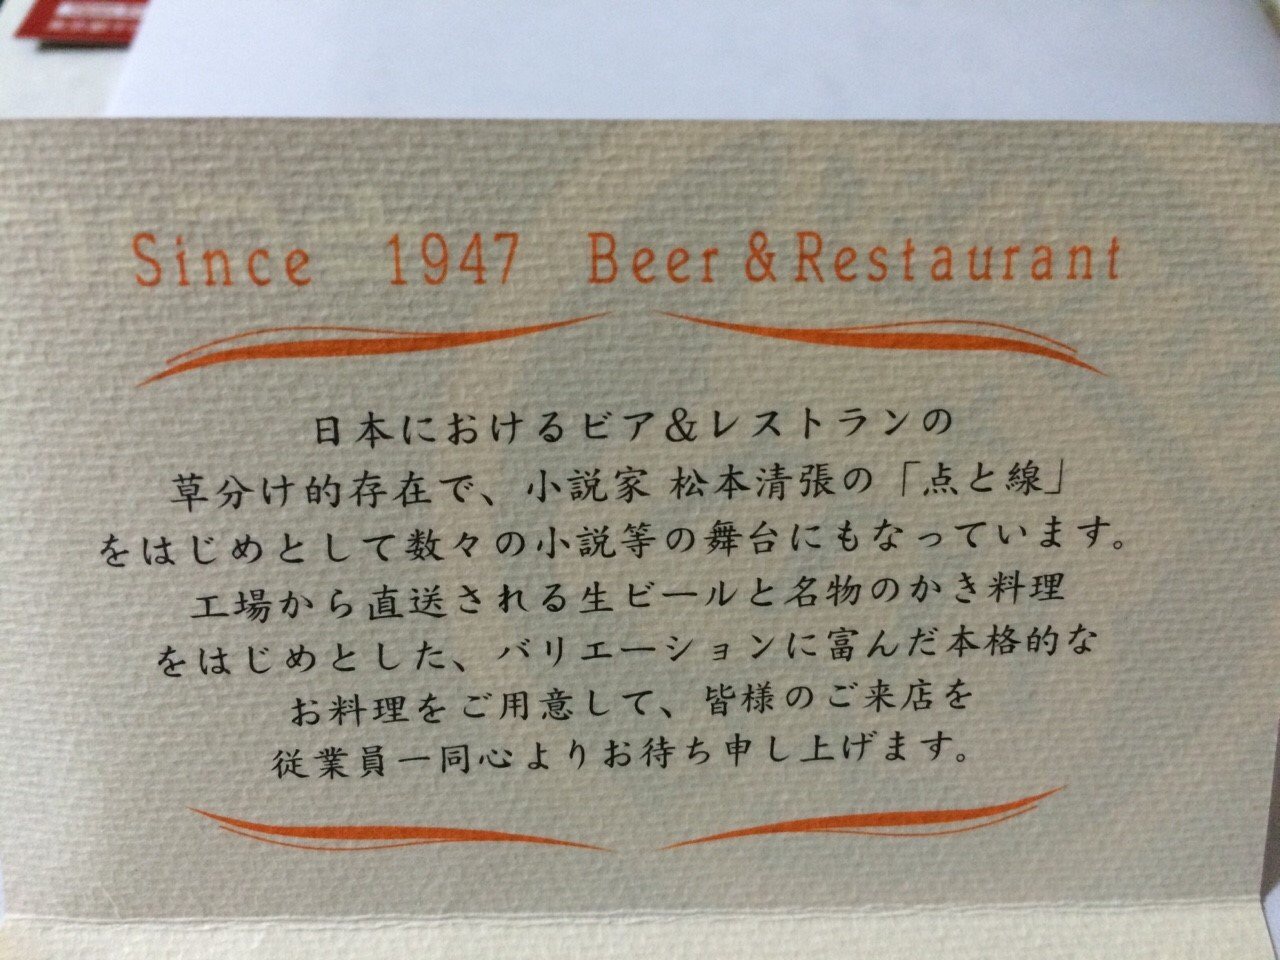 Since 1947 Beer & Restaurant
日本におけるビア&レストランの
草分け的存在で、小説家 松本清張の「点と線」
をはじめとして数々の小説等の舞台にもなっています。
工場から直送される生ビールと名物のかき料理
をはじめとした、バリエーションに富んだ本格的な
お料理をご用意して、皆様のご来店を
従業員一同心よりお待ち申し上げます。